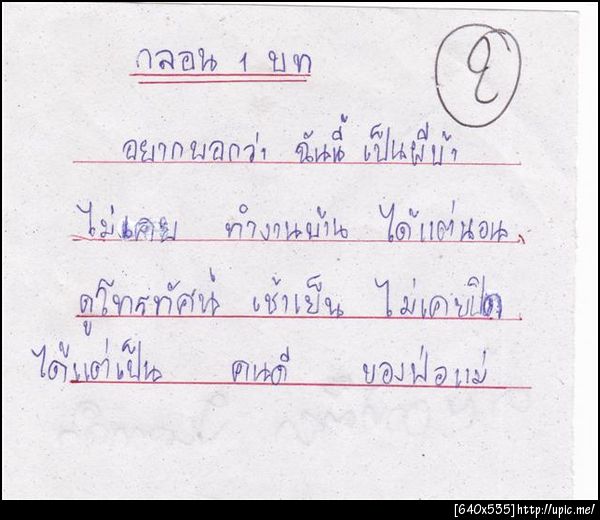 กลอน 1 บท
อยากบอกว่า ฉันนี้ เป็นผีบ้า
ไม่เคย ทำงานบ้าน ได้แต่นอน
ดูโทรทัศน์ เช้าเย็น ไม่เคยปิด
ได้แต่เป็น คนดี ของพ่อแม่
[640x535]http://upic.me/